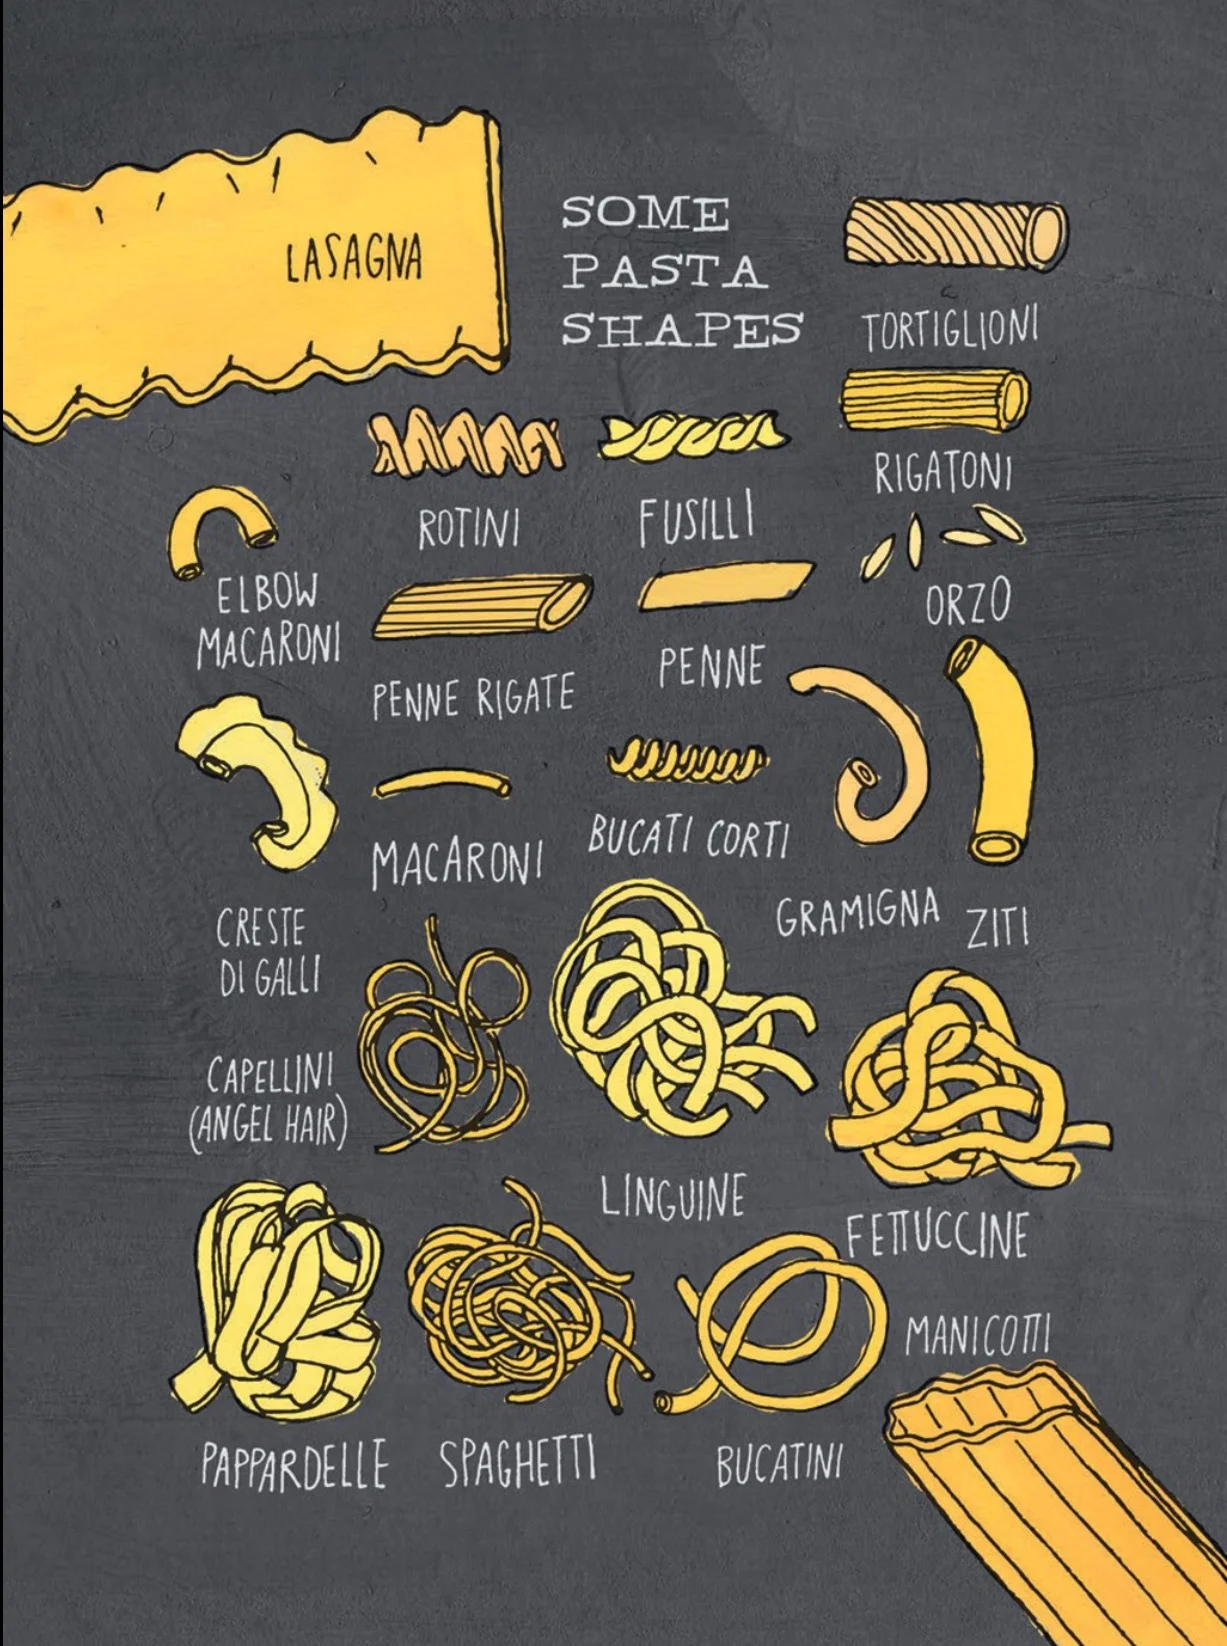 LASAGNA
SOME
PASTA
SHAPES
TORTIGLIONI
RIGATONI
ROTINI
FUSILLI
ELBOW
MACARONI
ORZO
PENNE RIGATE
PENNE
MACARONI
BUCATI CORTI
CRESTE
DI GALLI
GRAMIGNA
ZITI
CAPELLINI
(ANGEL HAIR)
LINGUINE
FETTUCCINE
MANICOTTI
PAPPARDELLE
SPAGHETTI
BUCATINI